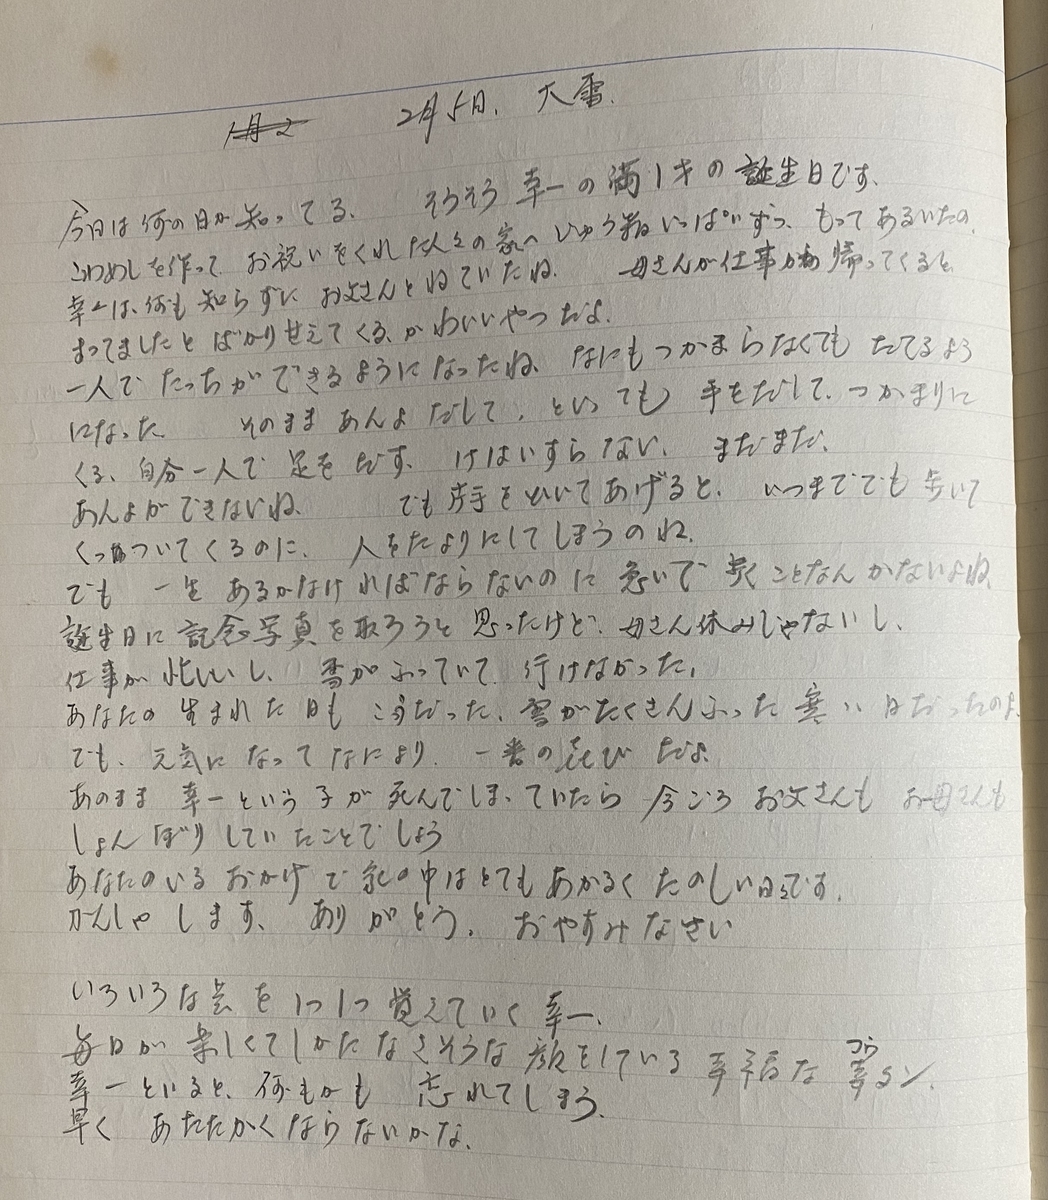 2月5日、大雪.
今日は何の日か知ってる、そうそう幸一の満1才の誕生日です、
こわめしを作って、お祝いをくれた人々の家へじゅう箱いっぱいずつ、もってあるいたの、
幸一は、何も知らずに お父さんとねていたね、母さんが仕事から帰ってくると
まってましたとばかり甘えてくる、かわいいやつだよ.
一人でたっちができるようになったね、なにもつかまらなくてもたてるよう
になった そのままあんよだして、といっても 手をだして、つかまりに
くる、自分一人で足をだす、けはいすらない、まだまだ、
あんよができないね、でも片手をひいてあげると、いつまででも歩いて
くっついてくるのに、人をたよりにしてしまうのね.
でも 一生あるかなければならないのに急いで歩くことなんかないよね
誕生日に記念写真を取ろうと思ったけど、母さん休みじゃないし、
仕事が忙しいし、雪がふっていて、行けなかった、
あなたの生まれた日もこうだった、雪がたくさんふった寒い日だったのよ
でも、元気になってなにより、一番の喜びだよ
あのまま 幸一という子が死んでしまっていたら 今ごろお父さんも お母さんも
しょんぼりしていたことでしょう
あなたのいるおかげで家の中はとてもあかるくたのしい日々です.
かんしゃします、ありがとう、おやすみなさい
いろいろな芸を1つ1つ覚えていく幸一、
毎日が楽しくてしかたなさそうな顔をしている 幸福な幸タン.
コウ
幸一といると、何もかも忘れてしまう.
早くあたたかくならないかな、